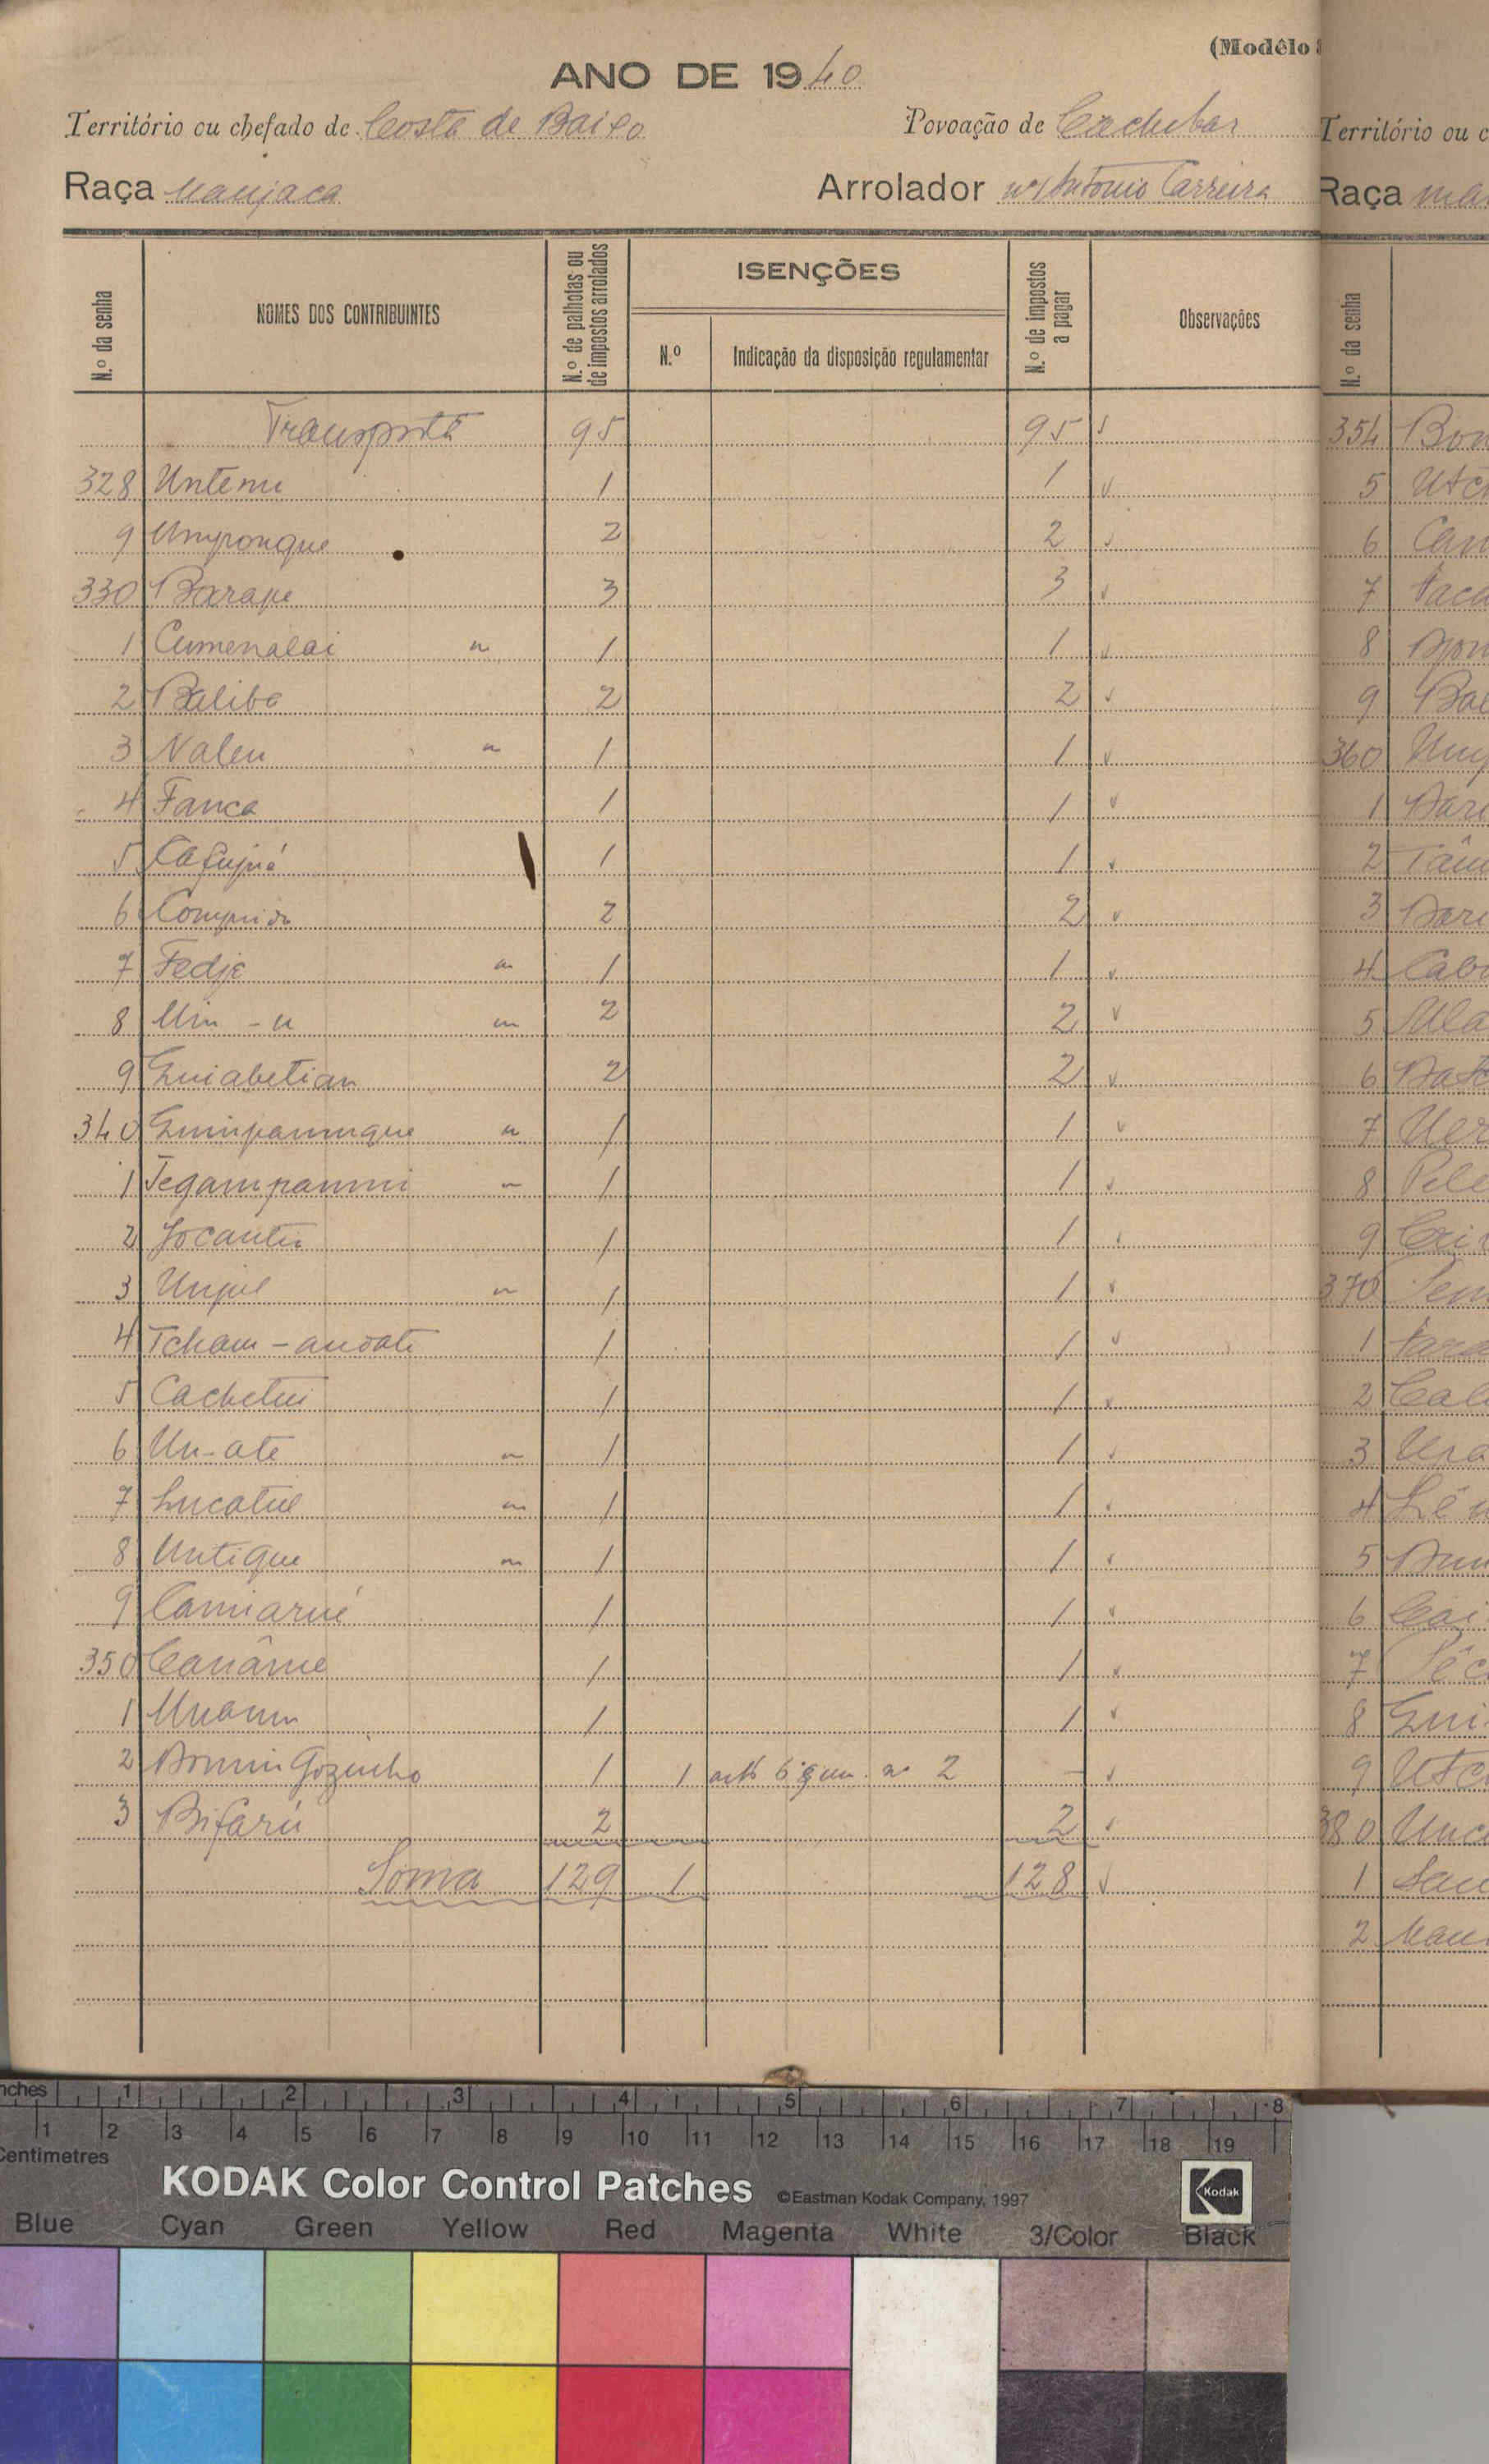 (Modêlo
ANO DE 1940
Território ou chefado de Costa de Baixo Povoação de Cachobar
Raça Manjaca Arrolador António Carreira
N.º da senha NOMES DOS CONTRIBUINTES N.º de palhotas ou de impostos arrolados ISENÇÕES N.º Indicação da disposição regulamentar N.º de impostos a pagar Observações
Transporte 95 95 ✓
328 Untemi 1 1 ✓
9 Umpongue 2 2 ✓
330 Barape 3 3 ✓
1 Cumenalai " 1 1 ✓
2 Baliba 2 2 ✓
3 Naleu " 1 1 ✓
4 Fanca 1 1 ✓
5 Cafupé 1 1 ✓
6 Comprido 2 2 ✓
7 Fedje " 1 1 ✓
8 Min - u " 2 2 ✓
9 Guiabetian 2 2 ✓
340 Guinpanmque " 1 1 ✓
1 Tegampanmi " 1 1 ✓
2 Jocantu 1 1 ✓
3 Unjul " 1 1 ✓
4 Tcham - andati 1 1 ✓
5 Cachetui 1 1 ✓
6 Un - ate " 1 1 ✓
7 Lucatul " 1 1 ✓
8 Untique " 1 1 ✓
9 Camiarué 1 1 ✓
350 Canâme 1 1 ✓
1 Unanm 1 1 ✓
2 Domingozinho 1 1 artº 6 § un. nº 2 - ✓
3 Bifarú 2 2 ✓
Soma 129 1 128 ✓
Território ou c
Raça ma
N.º da senha
354 Bon
5 Utc
6 Can
7
8
9 Bal
360
1
2
3
4 Cab
5
6
7
8
9
370
1
2 Cal
3
4
5
6
7
8 Gui
9 Utc
380
1
2
inches 1 2 3 4 5 6 7 8
1 2 3 4 5 6 7 8 9 10 11 12 13 14 15 16 17 18 19
Centimetres
KODAK Color Control Patches ©Eastman Kodak Company, 1997 Kodak
Blue Cyan Green Yellow Red Magenta White 3/Color Black